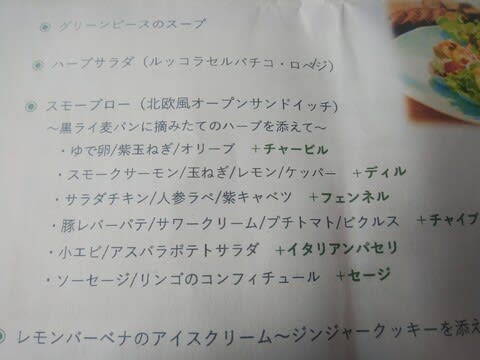 ◉ グリーンピースのスープ
◉ ハーブサラダ(ルッコラセルバチコ・ロベジ)
◉ スモーブロー(北欧風オープンサンドイッチ)
〜黒ライ麦パンに摘みたてのハーブを添えて〜
・ゆで卵/紫玉ねぎ/オリーブ +チャービル
・スモークサーモン/玉ねぎ/レモン/ケッパー +ディル
・サラダチキン/人参ラペ/紫キャベツ +フェンネル
・豚レバーパテ/サワークリーム/プチトマト/ピクルス +チャイブ
・小エビ/アスパラポテトサラダ +イタリアンパセリ
・ソーセージ/リンゴのコンフィチュール +セージ
◉ レモンバーベナのアイスクリーム〜ジンジャークッキーを添え